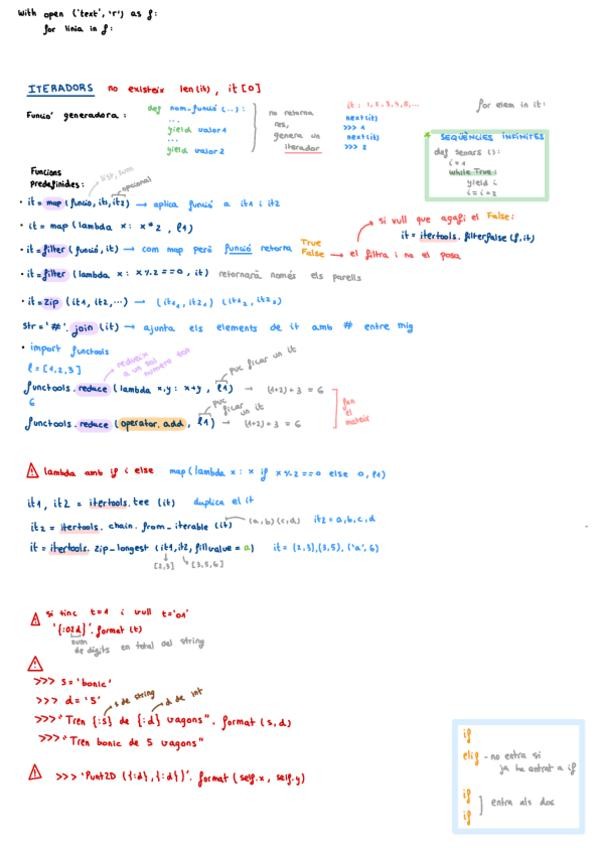 with open ('text', 'r') as f:
for linia in f:
ITERADORS no existeix len(it), it[0]
Funció generadora:
def nom_funció (...):
...
yield valor1
...
yield valor2
no retorna
res,
genera un
iterador
it: 1,2,3,4,5,6,...
next(it)
>>> 1
next(it)
>>> 2
for elem in it:
SEQÜÈNCIES INFINITES
def senars ():
i = 1
while True:
yield i
i = i + 2
Funcions
predefinides:
opcional
• it = map (funció, it1, it2) → aplica funció a it1 i it2
• it = map (lambda x: x*2, l1)
• it = filter (funció, it) → com map però funció retorna True
False → el filtra i no el posa
si vull que agafi el False:
it = itertools.filterfalse (f, it)
• it = filter (lambda x: x%2 == 0, it) retornarà només els parells
• it = zip (it1, it2, ...) → (it1₁, it2₁) (it1₂, it2₂)
str = '#'. join (it) → ajunta els elements de it amb # entre mig
• import functools
l = [1,2,3]
redueix
a un sol
número tot
puc ficar un it
functools. reduce (lambda x,y: x+y, l1) → (1+2)+3 = 6
6
puc
ficar
un it
functools. reduce (operator.add, l1) → (1+2)+3 = 6
fan
el
mateix
⚠ lambda amb if i else map (lambda x: x if x%2 == 0 else 0, l1)
it1, it2 = itertools.tee (it) duplica el it
it2 = itertools. chain. from_iterable (it) (a,b) (c,d) it2 = a,b,c,d
it = itertools. zip_longest (it1, it2, fillvalue = a) it = (2,3),(3,5),('a',6)
[2,3] [3,5,6]
⚠ si tinc t=1 i vull t='01'
'{:02d}'.format (t)
num
de dígits en total del string
⚠
>>> s = 'bonic'
>>> d = '5'
s de string
d de int
>>> "Tren {:s} de {:d} vagons". format (s, d)
>>> "Tren bonic de 5 vagons"
⚠ >>> 'Punt2D ({:d}, {:d})'. format (self.x, self.y)
if
elif - no entra si
ja ha entrat a if
if
if
entra als dos